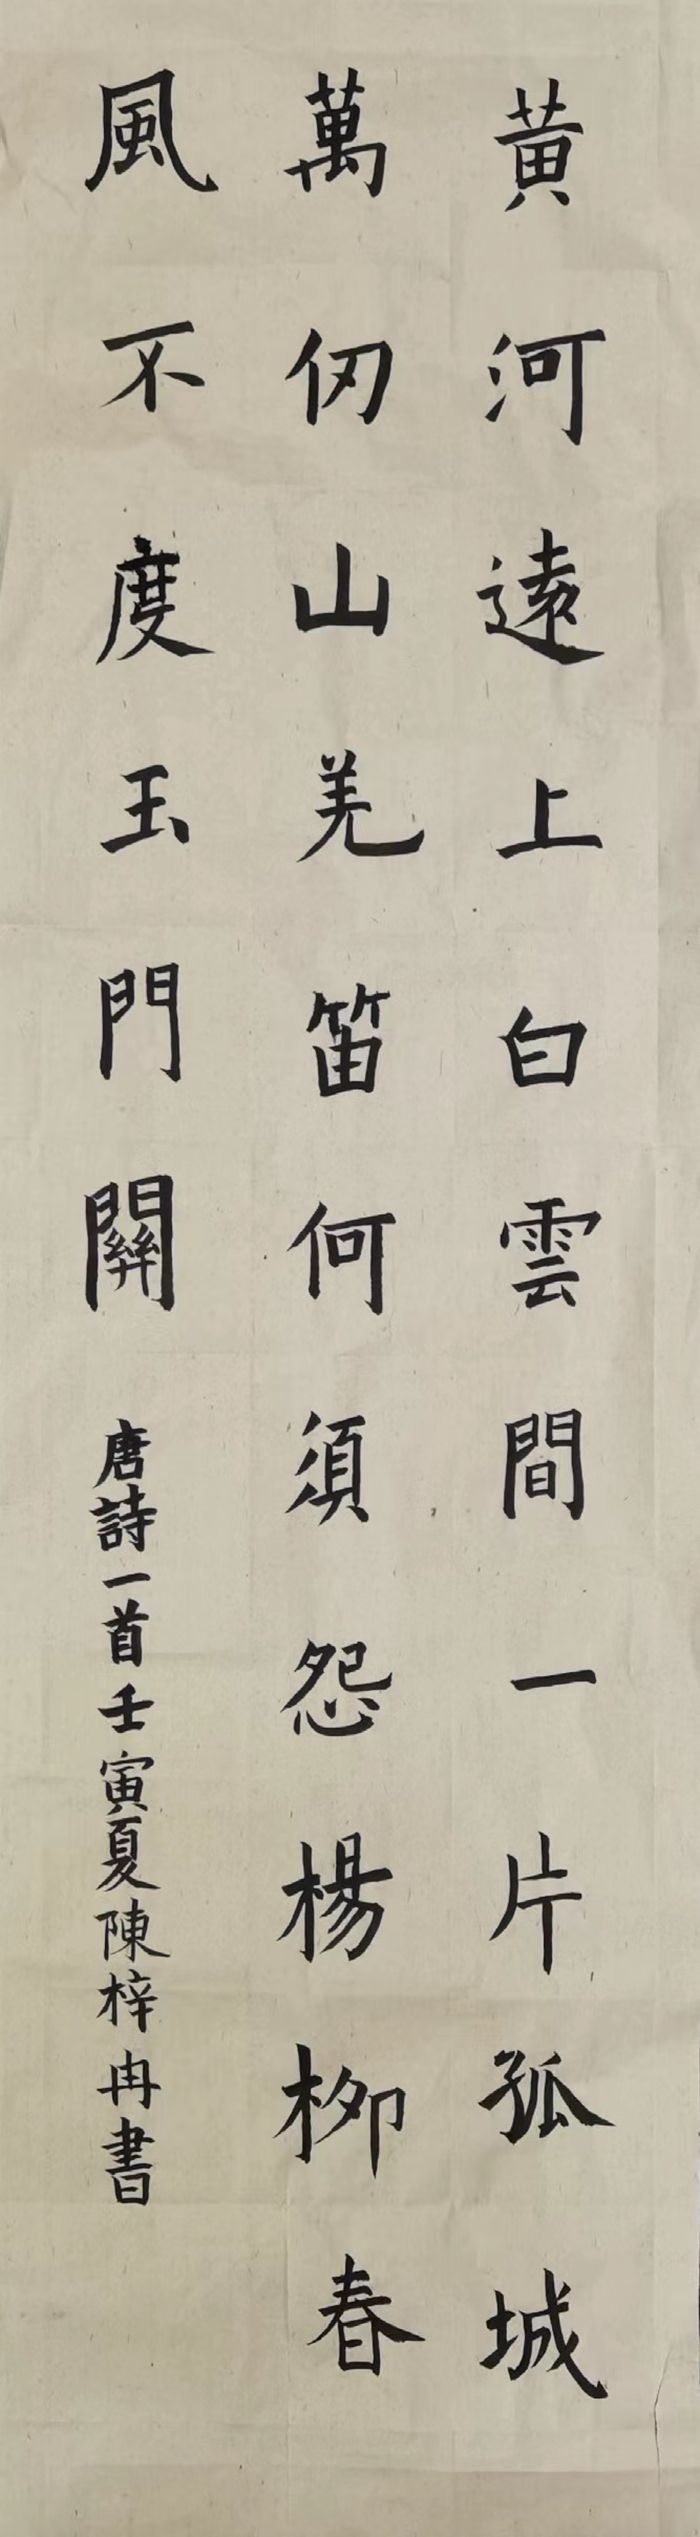 黃河遠上白雲間一片孤城
萬仞山羌笛何須怨楊柳春
風不度玉門關
唐詩一首壬寅夏陳梓冉書